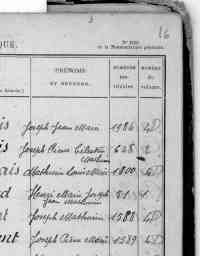 16
N° 1036
de la Nomenclature générale.
QUE.
PRÉNOMS
ET SURNOMS.
NUMÉROS
des
titulaires.
NUMÉRO
du
volume.
is Joseph Jean Marie 1986
is Joseph Pierre Célestin 628 2
Mathurin
ais Mathurin Louis Marie 1800
d Henri Marie Joseph 51 1
Jean Mathurin
nt Joseph Mathurin 1588
ent Joseph Pierre Marie 1589